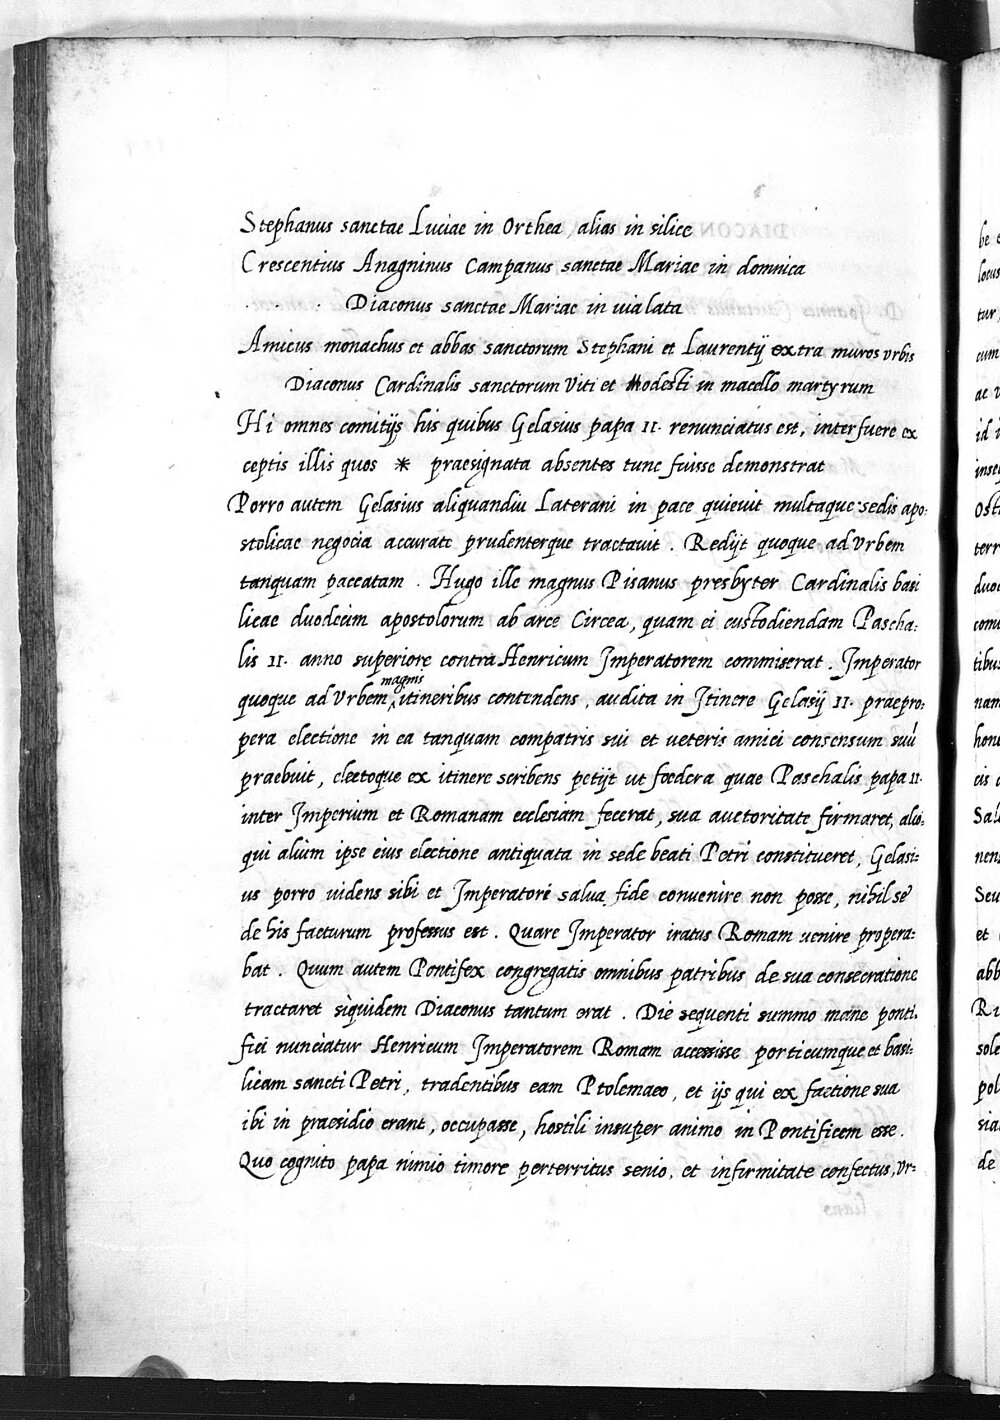 Stephanus sanctae Luciae in Orthea, alias in silice
Crescentius Anagninus Campanus sanctae Mariae in domnica
. . . Diaconus sanctae Mariae in uia lata
Amicus monachus et abbas sanctorum Stephani et Laurentij extra muros vrbis
Diaconus Cardinalis sanctorum Viti et Modesti in macello martyrum
Hi omnes comitijs his quibus Gelasius papa II. renunciatus est, interfuere ex
ceptis illis quos * praesignata absentes tunc fuisse demonstrat
Porro autem Gelasius aliquandiu Laterani in pace quieuit multaque sedis apo:
stolicae negocia accurate prudenterque tractauit. Redijt quoque ad Vrbem
tanquam paccatam. Hugo ille magnus Pisanus presbyter Cardinalis basi
licae duodecim apostolorum ab arce Circea, quam ei custodiendam Pascha:
lis II. anno superiore contra Henricum Imperatorem commiserat. Imperator
quoque ad Vrbem magnis itineribus contendens, audita in Itinere Gelasij II. praepro:
pera electione in ea tanquam compatris sui et ueteris amici consensum suũ
praebuit, electoque ex itinere scribens petijt ut foedera quae Paschalis papa II.
inter Imperium et Romanam ecclesiam fecerat, sua auctoritate firmaret, alio:
qui alium ipse eius electione antiquata in sede beati Petri constitueret, Gelasi:
us porro uidens sibi et Imperatori salua fide conuenire non posse, nihil se
de his facturum professus est. Quare Imperator iratus Romam uenire propera:
bat. Quum autem Pontifex congregatis omnibus patribus de sua consecratione
tractaret siquidem Diaconus tantum erat. Die sequenti summo mane ponti.
fici nunciatur Henricum Imperatorem Romam accessisse porticumque et basi:
licam sancti Petri, tradentibus eam Ptolemaeo, et ijs qui ex factione sua
ibi in praesidio erant, occupasse, hostili insuper animo in Pontificem esse.
Quo cognito papa nimio timore perterritus senio, et infirmitate confectus, vr: